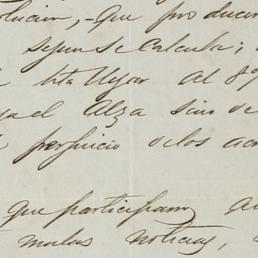 olucion, - Que producir
segun se calcula;
hta llegar al 8
el Alza sino de
perjuicio de los acr
que participam
malas noticias,